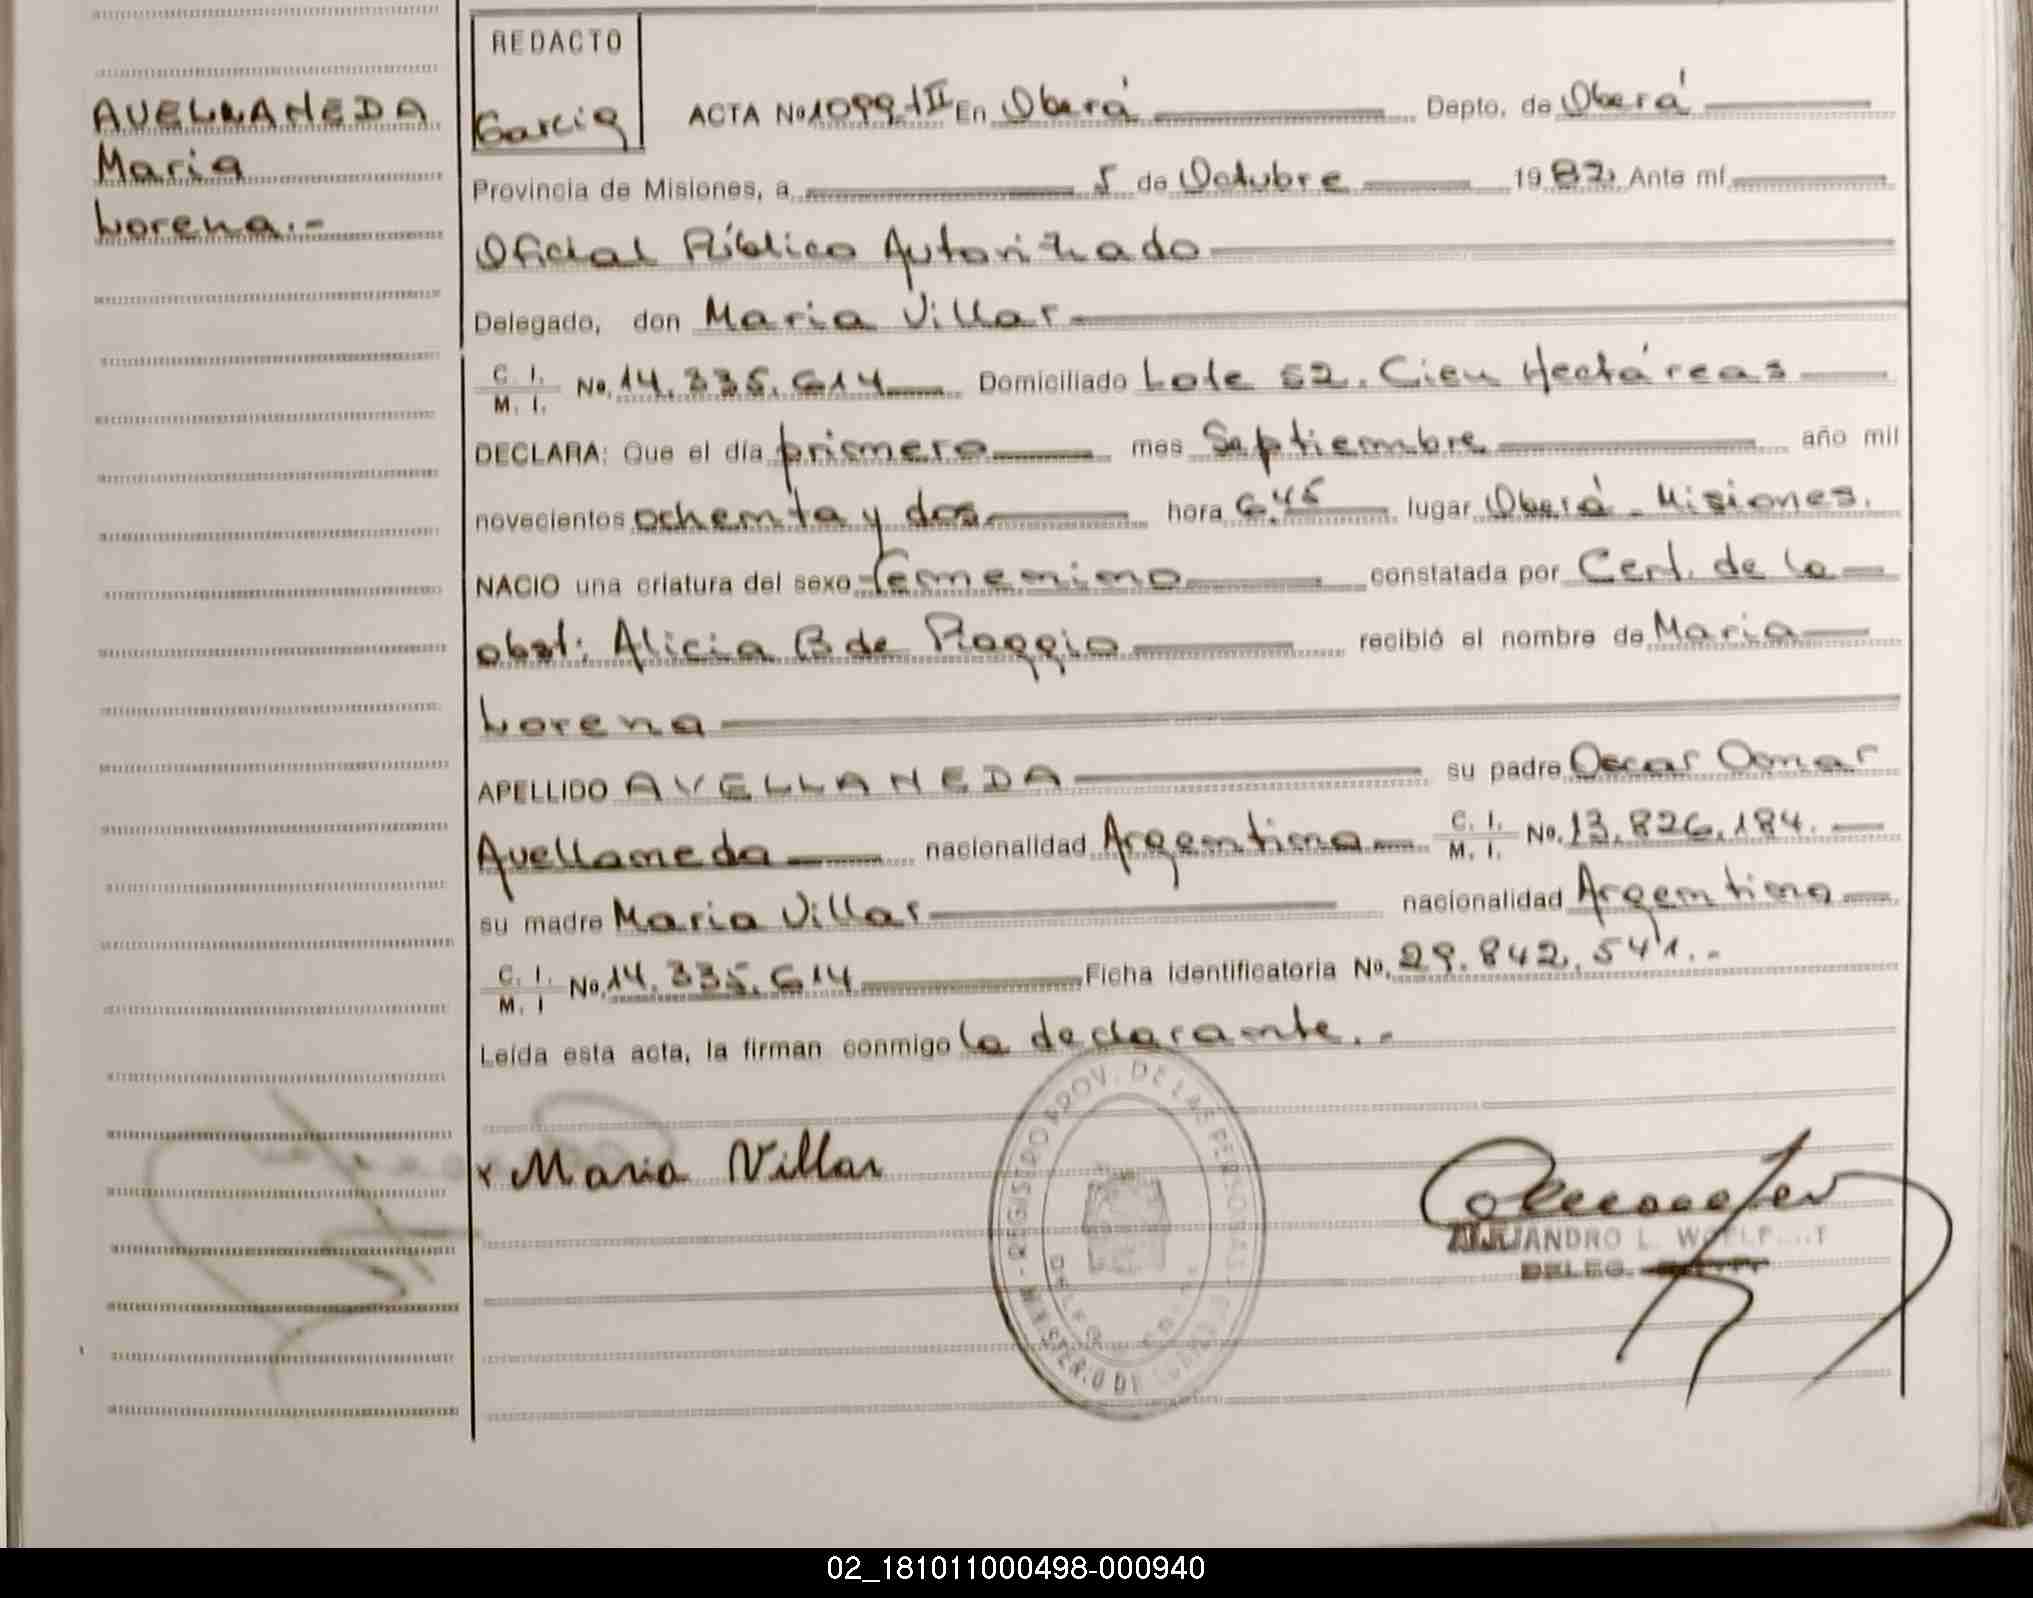 AVELLANEDA
Maria
Lorena.-
REDACTO
Garcia
ACTA No. 1099 tII En Oberá Depto. de Oberá
Provincia de Misiones, a 5 de Octubre 1982. Ante mí
Oficial Público Autorizado
Delegado, don Maria Villar
C. I. M. I. No. 14.335.614 Domiciliado Lote 52. Cien Hectáreas
DECLARA: Que el día primero mes Septiembre año mil
novecientos ochenta y dos hora 6.45 lugar Oberá - Misiones.
NACIO una criatura del sexo femenino constatada por Cert. de la
obst: Alicia B de Roggio recibió el nombre de Maria
Lorena
APELLIDO AVELLANEDA su padre Oscar Omar
Avellaneda nacionalidad Argentina C. I. M. I. No. 13.826.184.
su madre Maria Villar nacionalidad Argentina
C. I. M. I No. 14.335.614 Ficha identificatoria No. 29.842.541.-
Leída esta acta, la firman conmigo la declarante.-
x Maria Villar
REGISTRO PROV. DE LAS PERSONAS
MINISTERIO DE
ALEJANDRO L.
DELEG.
02_181011000498-000940